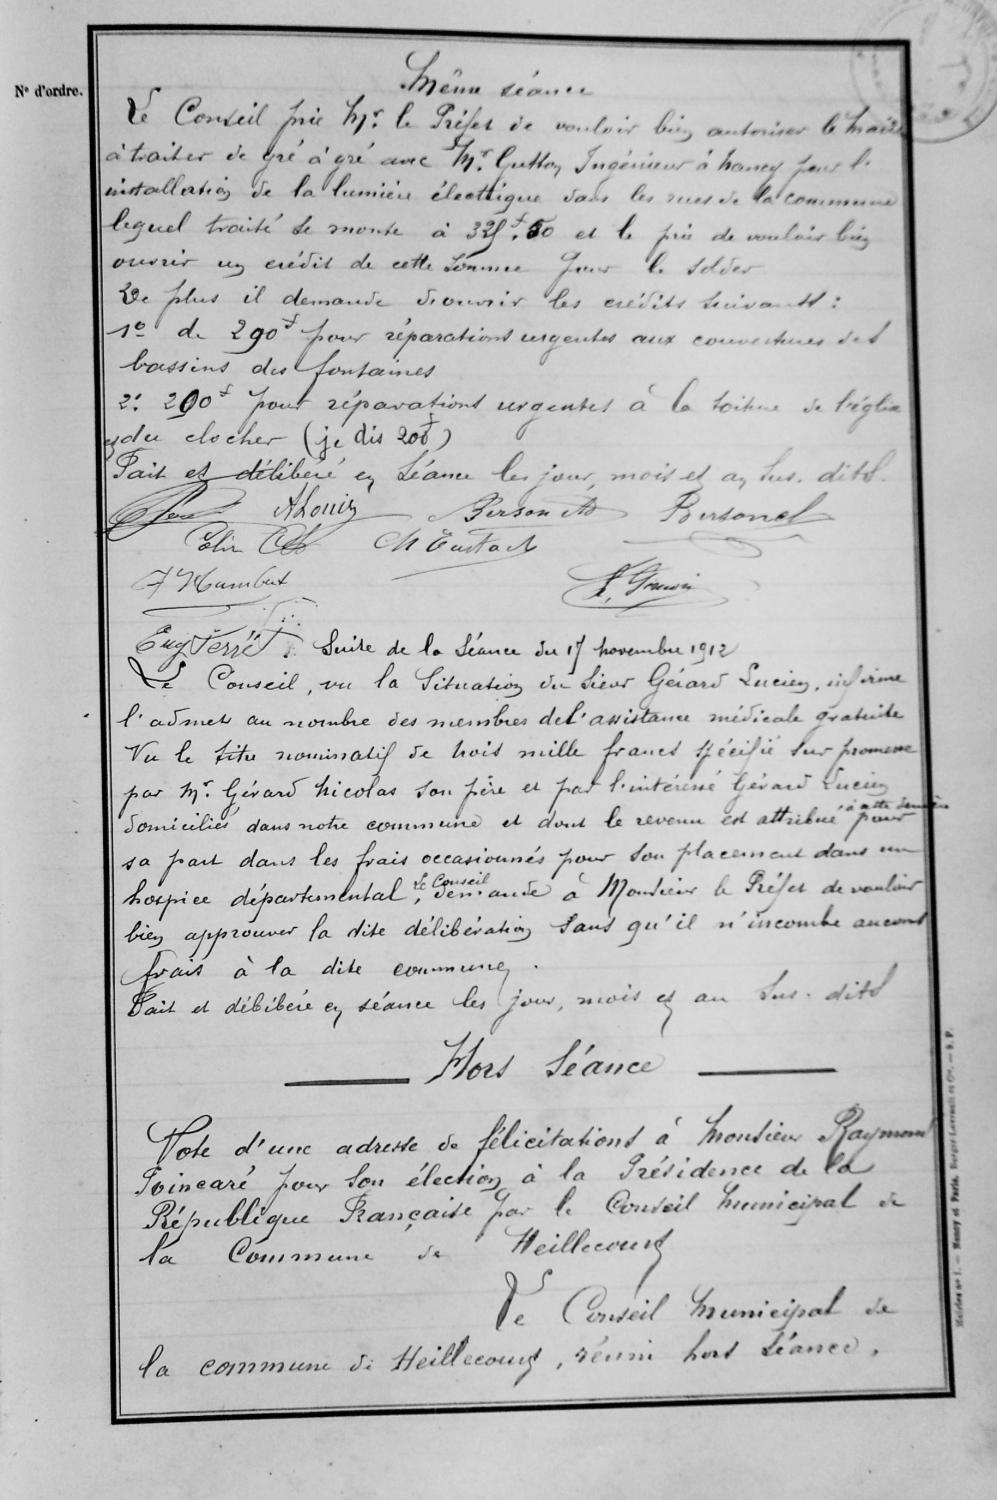 N° d'ordre.
Même séance
Le Conseil prie Mr. le Préfet de vouloir bien autoriser le Maire
à traiter de gré à gré avec Mr. Gutton Ingénieur à Nancy pour l'
installation de la lumière électrique dans les rues de la commune
lequel traité se monte à 325f.50 et le prie de vouloir bien
ouvrir un crédit de cette somme pour le solder
De plus il demande d'ouvrir les crédits suivants :
1° de 290f pour réparations urgentes aux couvertures des
bassins des fontaines
2° 200f pour réparations urgentes à la toiture de l'église
et du clocher (je dis 200f)
Fait et délibéré en séance les jour, mois et an sus-dits.
ALouis Bersonetb Bersonel
Ch Eustach
F Humbert
Eug Ferré. Suite de la Séance du 17 novembre 1912
Le Conseil, vu la Situation du Sieur Gérard Lucien, infirme
l'admet au nombre des membres de l'assistance médicale gratuite
Vu le titre nominatif de trois mille francs spécifié sur promesse
par Mr. Gérard Nicolas son père et par l'intéressé Gérard Lucien
domiciliés dans notre commune et dont le revenu est attribué à cette dernière pour
sa part dans les frais occasionnés pour son placement dans un
hospice départemental, Le Conseil demande à Monsieur le Préfet de vouloir
bien approuver la dite délibération sans qu'il n'incombe aucuns
frais à la dite commune.
Fait et débibéré en séance les jour, mois et an sus-dits
Hors Séance
Vote d'une adresse de félicitations à Monsieur Raymond
Poincaré pour son élection à la Présidence de la
République Française par le Conseil Municipal de
la Commune de Heillecourt
Le Conseil Municipal de
la commune de Heillecourt, réuni hors séance,
Mairies n° 1. — Nancy et Paris. Berger-Levrault et Cie. — S. P.